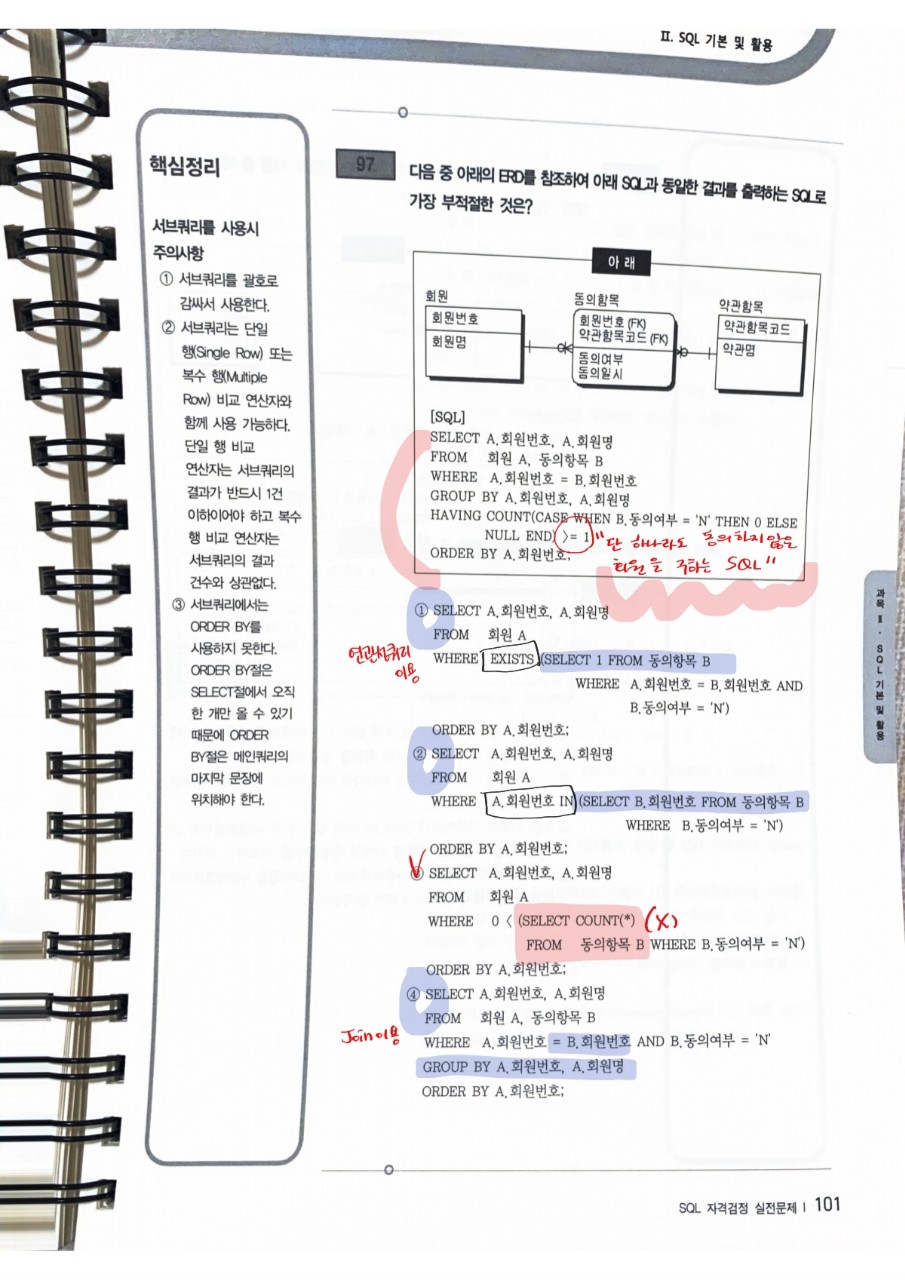 Ⅱ. SQL 기본 및 활용
핵심정리
서브쿼리를 사용시
주의사항
① 서브쿼리를 괄호로
감싸서 사용한다.
② 서브쿼리는 단일
행(Single Row) 또는
복수 행(Multiple
Row) 비교 연산자와
함께 사용 가능하다.
단일 행 비교
연산자는 서브쿼리의
결과가 반드시 1건
이하이어야 하고 복수
행 비교 연산자는
서브쿼리의 결과
건수와 상관없다.
③ 서브쿼리에서는
ORDER BY를
사용하지 못한다.
ORDER BY절은
SELECT절에서 오직
한 개만 올 수 있기
때문에 ORDER
BY절은 메인쿼리의
마지막 문장에
위치해야 한다.
97
다음 중 아래의 ERD를 참조하여 아래 SQL과 동일한 결과를 출력하는 SQL로
가장 부적절한 것은?
아 래
회원
회원번호
회원명
동의항목
회원번호 (FK)
약관항목코드 (FK)
동의여부
동의일시
약관항목
약관항목코드
약관명
[SQL]
SELECT A.회원번호, A.회원명
FROM 회원 A, 동의항목 B
WHERE A.회원번호 = B.회원번호
GROUP BY A.회원번호, A.회원명
HAVING COUNT(CASE WHEN B.동의여부 = 'N' THEN 0 ELSE
NULL END) >= 1
ORDER BY A.회원번호;
"단 하나라도 동의하지 않은
회원을 구하는 SQL"
① SELECT A.회원번호, A.회원명
FROM 회원 A
WHERE EXISTS (SELECT 1 FROM 동의항목 B
WHERE A.회원번호 = B.회원번호 AND
B.동의여부 = 'N')
ORDER BY A.회원번호;
연관서브쿼리
이용
② SELECT A.회원번호, A.회원명
FROM 회원 A
WHERE A.회원번호 IN (SELECT B.회원번호 FROM 동의항목 B
WHERE B.동의여부 = 'N')
ORDER BY A.회원번호;
③ SELECT A.회원번호, A.회원명
FROM 회원 A
WHERE 0 < (SELECT COUNT(*) (X)
FROM 동의항목 B WHERE B.동의여부 = 'N')
ORDER BY A.회원번호;
④ SELECT A.회원번호, A.회원명
FROM 회원 A, 동의항목 B
WHERE A.회원번호 = B.회원번호 AND B.동의여부 = 'N'
GROUP BY A.회원번호, A.회원명
ORDER BY A.회원번호;
Join 이용
과목 Ⅱ · SQL 기본 및 활용
SQL 자격검정 실전문제 | 101